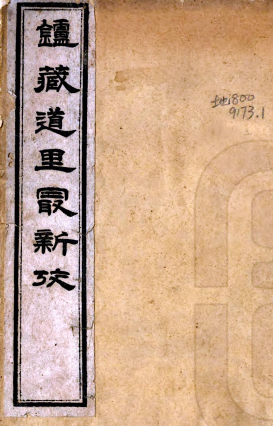 鑪藏道里最新攷
地800
9173.1